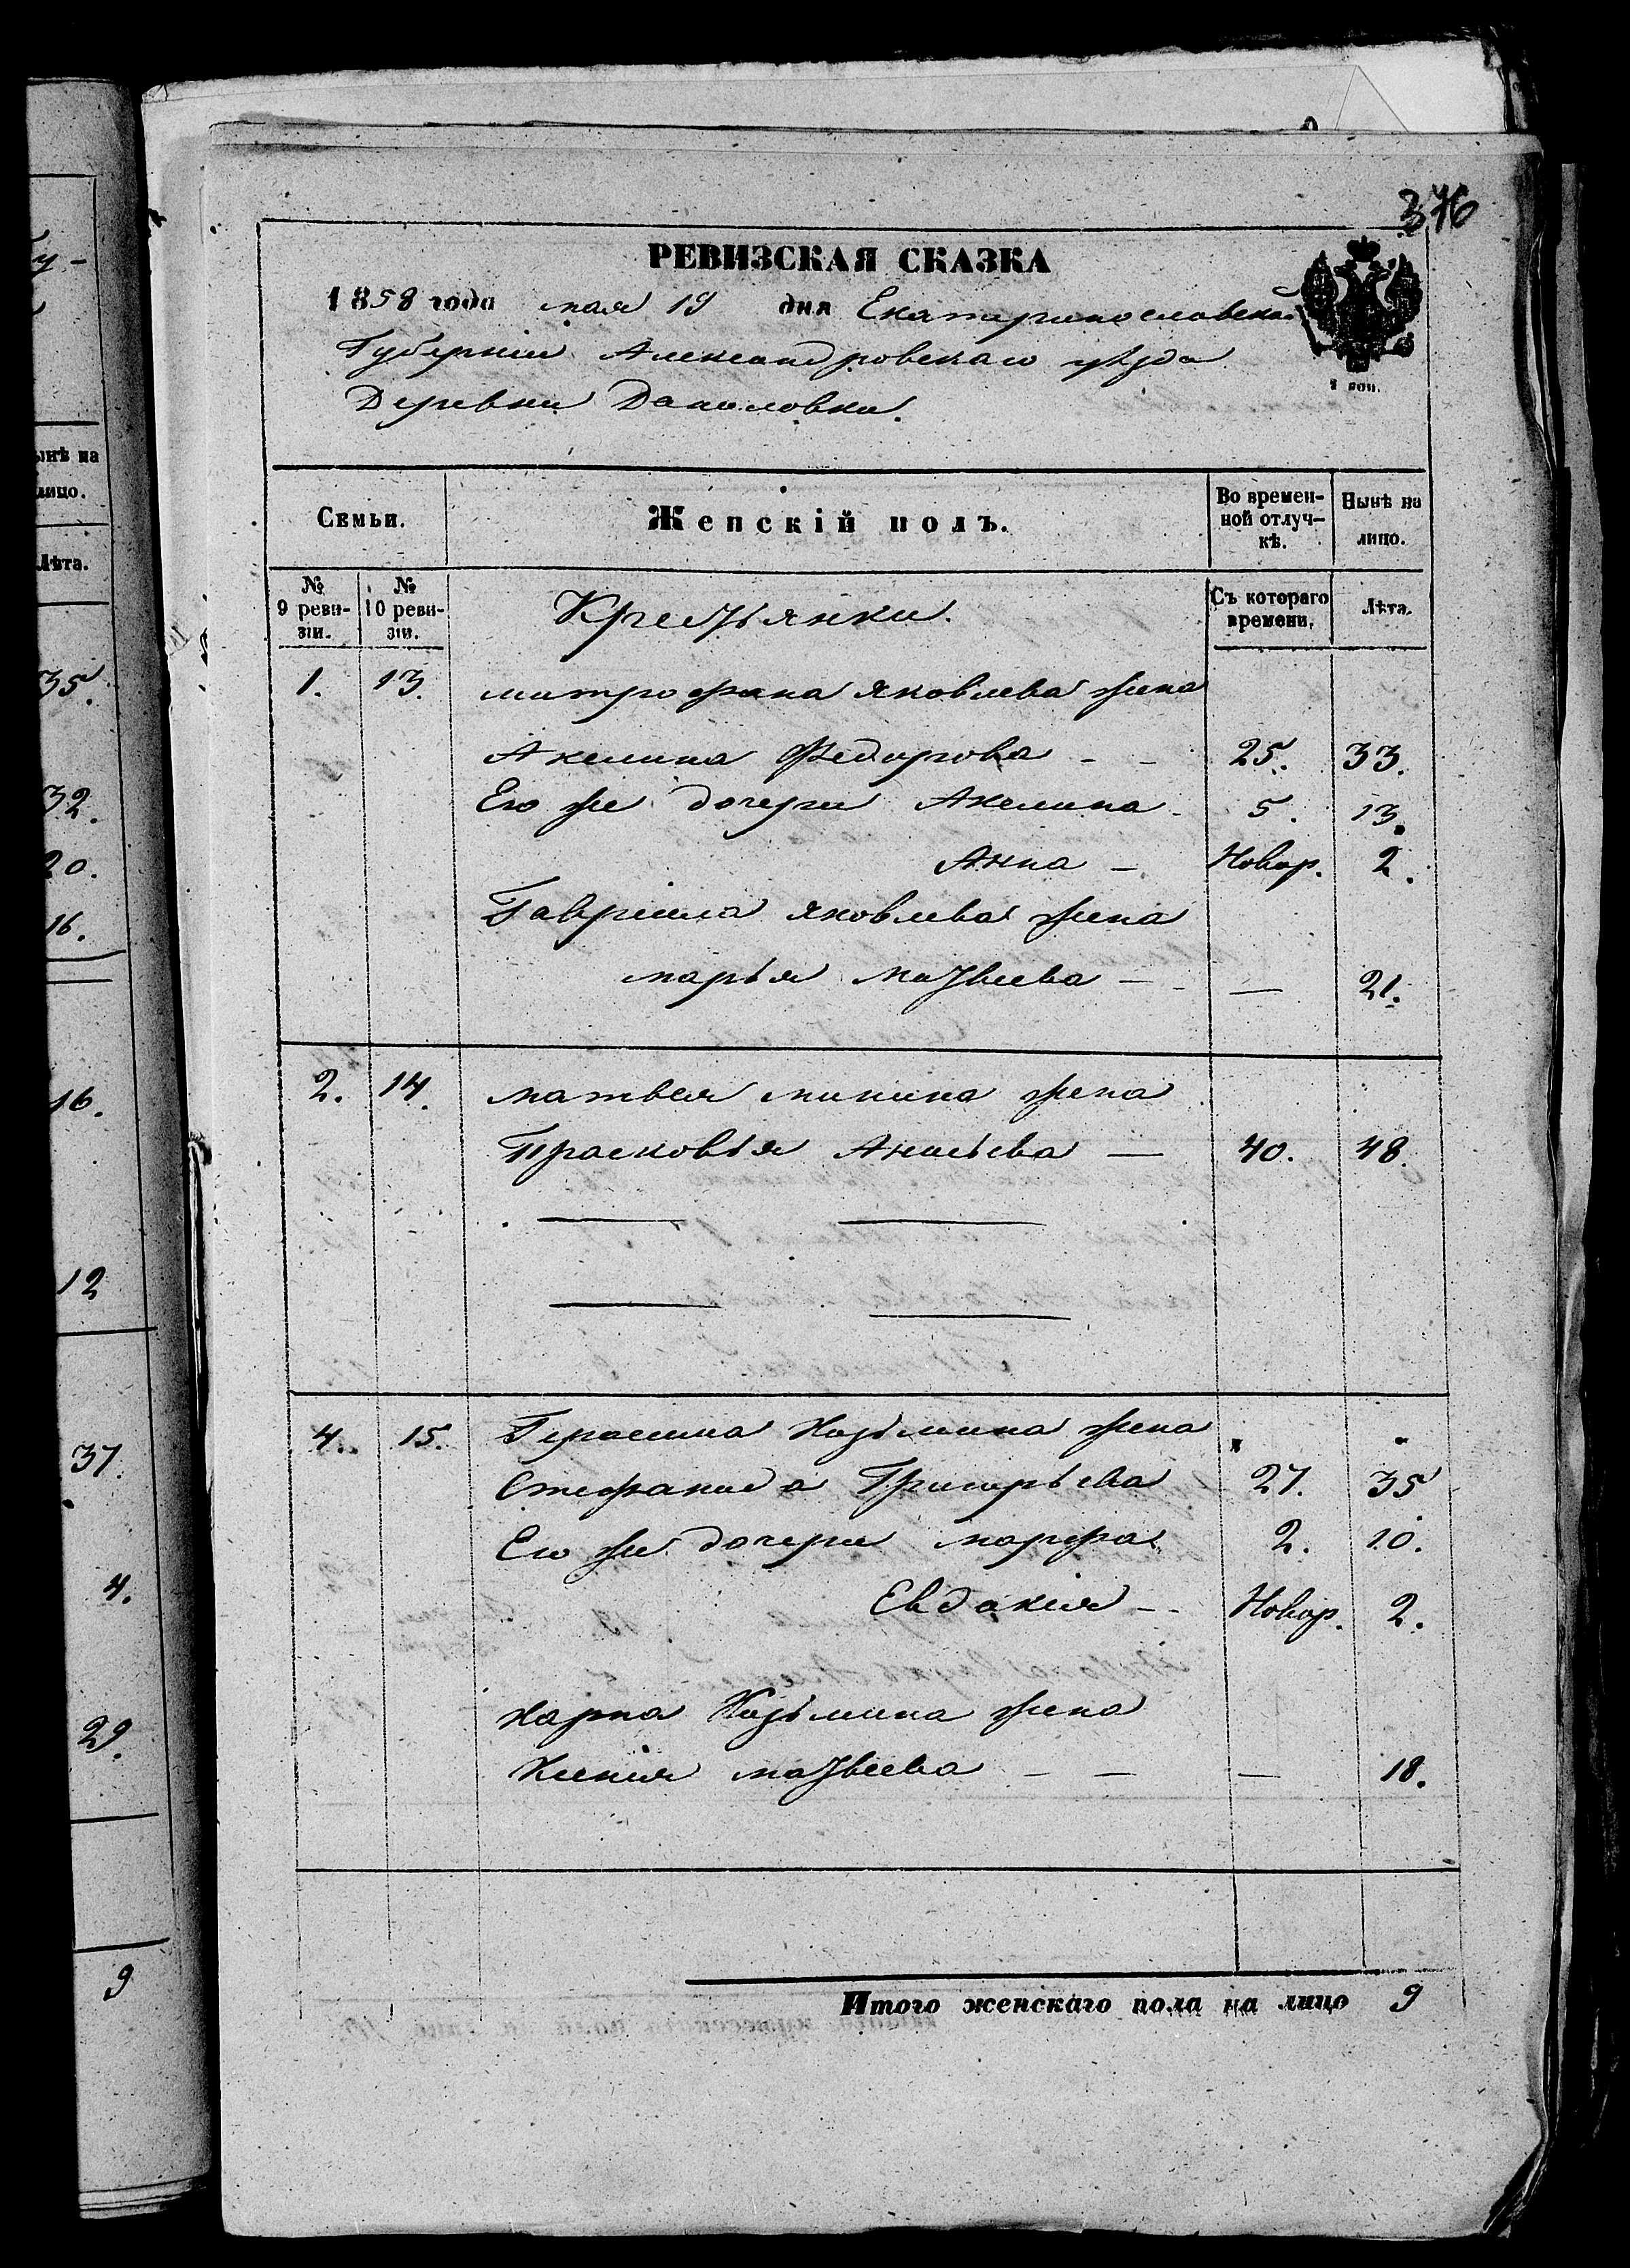 376
РЕВИЗСКАЯ СКАЗКА
1858 года мая 19 дня Екатеринославской
Губерніи Александровскаго уѣзда
Деревни Даниловки.
1 коп.
Семьи.
Женскій полъ.
Во времен-
ной отлуч-
кѣ.
Нынѣ на
лицо.
№
9 реви-
зіи.
№
10 реви-
зіи.
Крестьянки.
Съ котораго
времени.
Лѣта.
1. 13. Митрофана Яковлева жена
Акелина Федорова - - 25. 33.
Его же дочери Акелина - 5. 13.
Анна - Новор. 2.
Гавріила Яковлева жена
Марья Матвеева - - — 21.
2. 14. Матвея Минина жена
Прасковья Ананьева — 40. 48.
4. 15. Герасима Козьмина жена
Стефанида Григорьева 27. 35
Его же дочери Марфа 2. 10.
Евдокія - - Новор. 2.
Карпа Козьмина жена
Ксенія Матвеева - - — 18.
Итого женскаго пола на лицо 9
ынѣ на
лицо.
Лѣта.
35.
32.
20.
16.
16.
12
37.
4.
29.
9